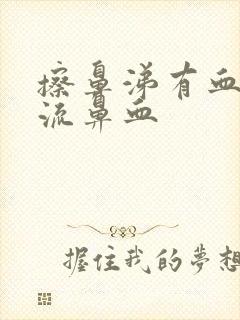 擦鼻涕有血
流鼻血
握住我的夢想